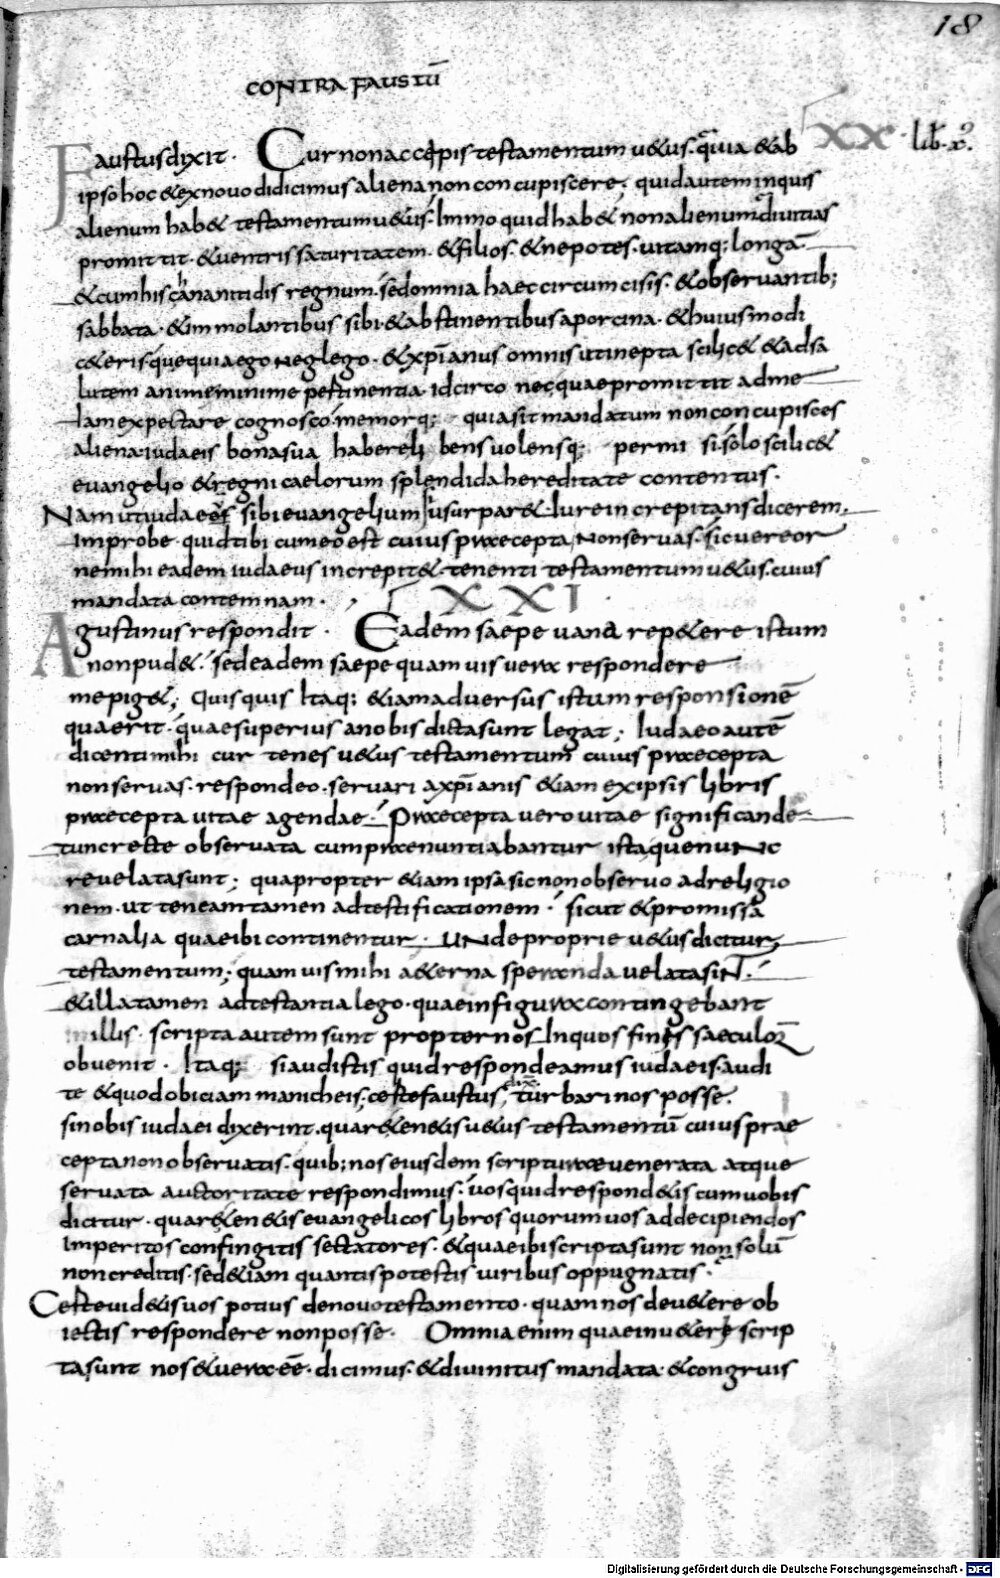 18
CONTRA FAUSTŪ
Faustus dixit. Cur non accipis testamentum u&us. quia & ab XX. lib. x.
ipso hoc & ex nouo didicimus aliena non concupiscere; quid autem inquis
alienum hab& testamentum u&us; Immo quid hab& non alienum. diuitias
promittit. & uentris saturitatem. & filios. & nepotes. uitamq; longā.
& cum his chananitidis regnum. sed omnia haec circumcisis. & obseruantib;
sabbata. & immolantibus sibi. & abstinentibus a porcina. & huiusmodi
c&eris que quia ego neglego. & xp̄ianus omnis ut inepta scilic& & ad sa
lutem anime minime pertinentia. idcirco nec quae promittit ad me
iam expectare cognosco. memorq; quia sit mandatum non concupisces
aliena. iudaeis bona sua habere libens uolensq; permi si. solo scilic&
euangelio & regni caelorum splendida hereditate contentus.
Nam ut iudaeus sibi euangelium si usurpar&. Iure increpitans dicerem.
Improbe. quid tibi cum eo est cuius praecepta non seruas. sic uereor
ne mihi eadem iudaeus increpit&. tenenti testamentum u&us. cuius
mandata contemnam. XXI
Agustinus respondit. Eadem saepe uana rep&ere istum
non pud&. sed eadem saepe quamuis uera respondere
me pig&; Quisquis Itaq; &iam aduersus istum responsionē
quaerit. quae superius a nobis dicta sunt legat; Iudaeo autē
dicenti mihi cur tenes u&us testamentum cuius praecepta
non seruas. respondeo. seruari a xp̄ianis &iam ex ipsis libris
praecepta uitae agendae. Praecepta uero uitae significande
tunc recte obseruata cum praenuntiabantur ista que nunc
reuelata sunt; quapropter &iam ipsa sic non obseruo ad religio
nem. ut teneam tamen ad testificationem. sicut & promissa
carnalia quae ibi continentur. Unde proprie u&us dicitur
testamentum; quamuis mihi a&erna speranda uelata sint.
& illa tamen ad testantia lego. quae in figura contingebant
illis. scripta autem sunt propter nos Inquos finis saeculoꝝ
obuenit. Itaq; si audistis quid respondeamus iudaeis. audi
te & quod obiciam manicheis. ceste faustus, dix. turbari nos posse.
si nobis iudaei dixerint. quar& en&is u&us testamentū cuius prae
cepta non obseruatis. quib; nos eiusdem scripturae uenerata atque
seruata auctoritate respondimus. uos quid respond&is cum uobis
dicitur. quar& en&is euangelicos libros quorum uos ad decipiendos
Imperitos confingitis sectatores. & quae ibi scripta sunt non solū
non creditis. sed &iam quantis potestis uiribus oppugnatis.
Ceste uid&is uos potius de nouo testamento. quam nos de u&ere ob
iectis respondere non posse. Omnia enim quae in u&ere scrip
ta sunt nos & uera eē. dicimus. & diuinitus mandata & congruis
Digitalisierung gefördert durch die Deutsche Forschungsgemeinschaft - DFG